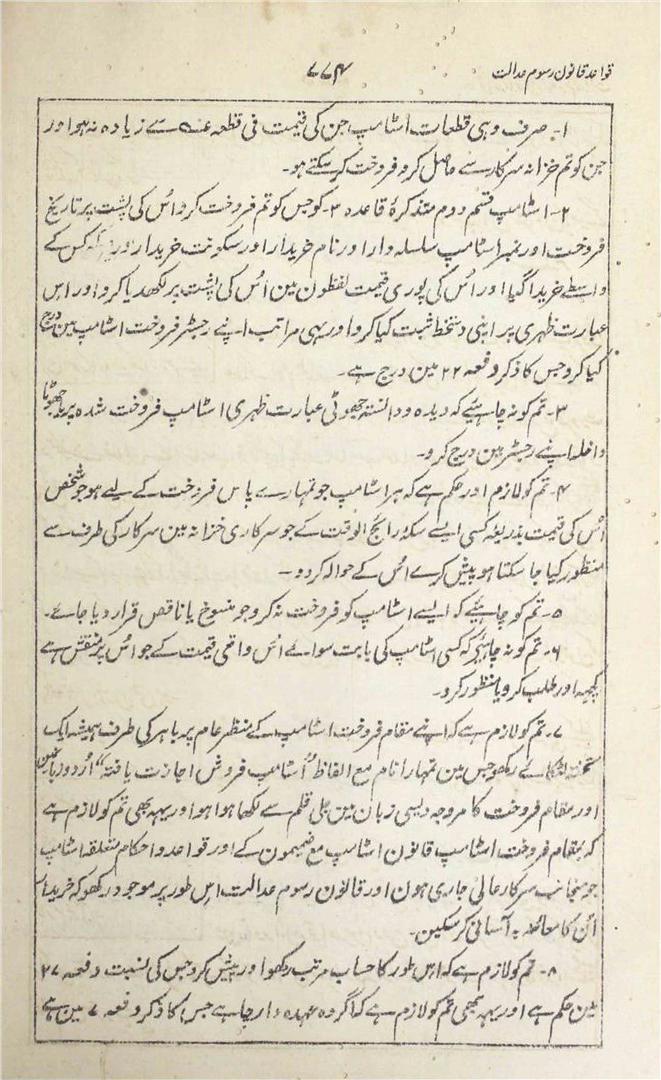 قواعد قانون رسوم عدالت ۷۷۴
۱۔ صرف وہی قطعات اسٹامپ جن کی قیمت فی قطعہ سے زیادہ نہ ہو اور
جن کو تم خزانہ سرکار سے حاصل کرو فروخت کر سکتے ہو۔
۲۔ اسٹامپ قسم دوم متذکرۂ قاعدہ ۳۔ کو جس کو تم فروخت کرو اُس کی پشت پر تاریخ
فروخت اور نمبر اسٹامپ سلسلہ وار اور نام خریدار اور سکونت خریدار اور نیز یہ کہ کس کے
واسطے خریدا گیا اور اُس کی پوری قیمت لفظون مین اُس کی پشت پر لکھدیا کرو اور اس
عبارت ظہری پر اپنی دستخط ثبت کیا کرو اور یہی مراتب اپنے رجسٹر فروخت اسٹامپ مین درج
کیا کرو جس کا ذکر دفعہ ۲۲ مین درج ہے۔
۳۔ تم کو نہ چاہئیے کہ دیدہ و دانستہ جھوٹی عبارت ظہری اسٹامپ فروخت شدہ پر یا جھوٹا
داخلہ اپنے رجسٹر مین درج کرو۔
۴۔ تم کو لازم اور حکم ہے کہ ہر اسٹامپ جو تمہارے پاس فروخت کے لیے ہو جو شخص
اُس کی قیمت بذریعہ کسی ایسے سکہ رائج الوقت کے جو سرکاری خزانہ مین سرکار کی طرف سے
منظور کیا جا سکتا ہو پیش کرے اُس کے حوالہ کر دو۔
۵۔ تم کو چاہئیے کہ ایسے اسٹامپ کو فروخت نہ کرو جو منسوخ یا ناقص قرار دیا جائے۔
۶۔ تم کو نہ چاہئیے کہ کسی اسٹامپ کی بابت سوائے اُس واقعی قیمت کے جو اُس پر منقش ہے
کچھہ اور طلب کرو یا منظور کرو۔
۷۔ تم کو لازم ہے کہ اپنے مقام فروخت اسٹامپ کے منظر عام پر باہر کی طرف ہمیشہ ایک
تختہ لٹکائے رکھو جس مین تمہارا نام مع الفاظ "اسٹامپ فروش اجازت یافتہ" اُردو زبان مین
اور مقام فروخت کا مروجہ دیسی زبان مین جلی قلم سے لکھا ہوا ہو اور یہہ بھی تم کو لازم ہے
کہ بمقام فروخت اسٹامپ قانون اسٹامپ مع ضمیمون کے اور قواعد و احکام متعلقہ اسٹامپ
جو منجانب سرکار عالی جاری ہون اور قانون رسوم عدالت اس طور پر موجود رکھو کہ خریدار
اُن کا معائنہ بہ آسانی کر سکین۔
۸۔ تم کو لازم ہے کہ اس طور کا حساب مرتب رکھو اور پیش کرو جس کی نسبت دفعہ ۲۷
مین حکم ہے اور یہہ بھی تم کو لازم ہے کہ اگر وہ عہدہ دار چاہے جس کا ذکر دفعہ ۷ مین ہے